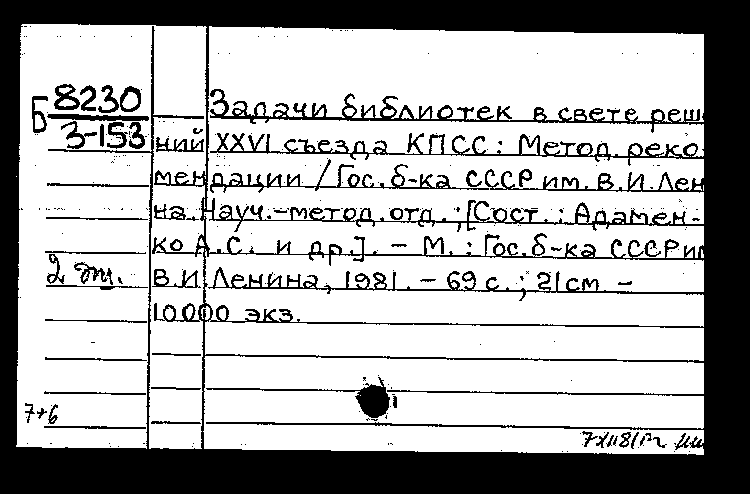 Б 8230
З-153
Задачи библиотек в свете реше
ний XXVI съезда КПСС: Метод. реко
мендации / Гос. б-ка СССР им. В.И. Лен
на. Науч.-метод. отд.; [Сост.: Адамен-
ко А.С. и др.]. - М.: Гос. б-ка СССР им
2 эк. В.И. Ленина, 1981. - 69 с.; 21 см. -
10000 экз.
7+6